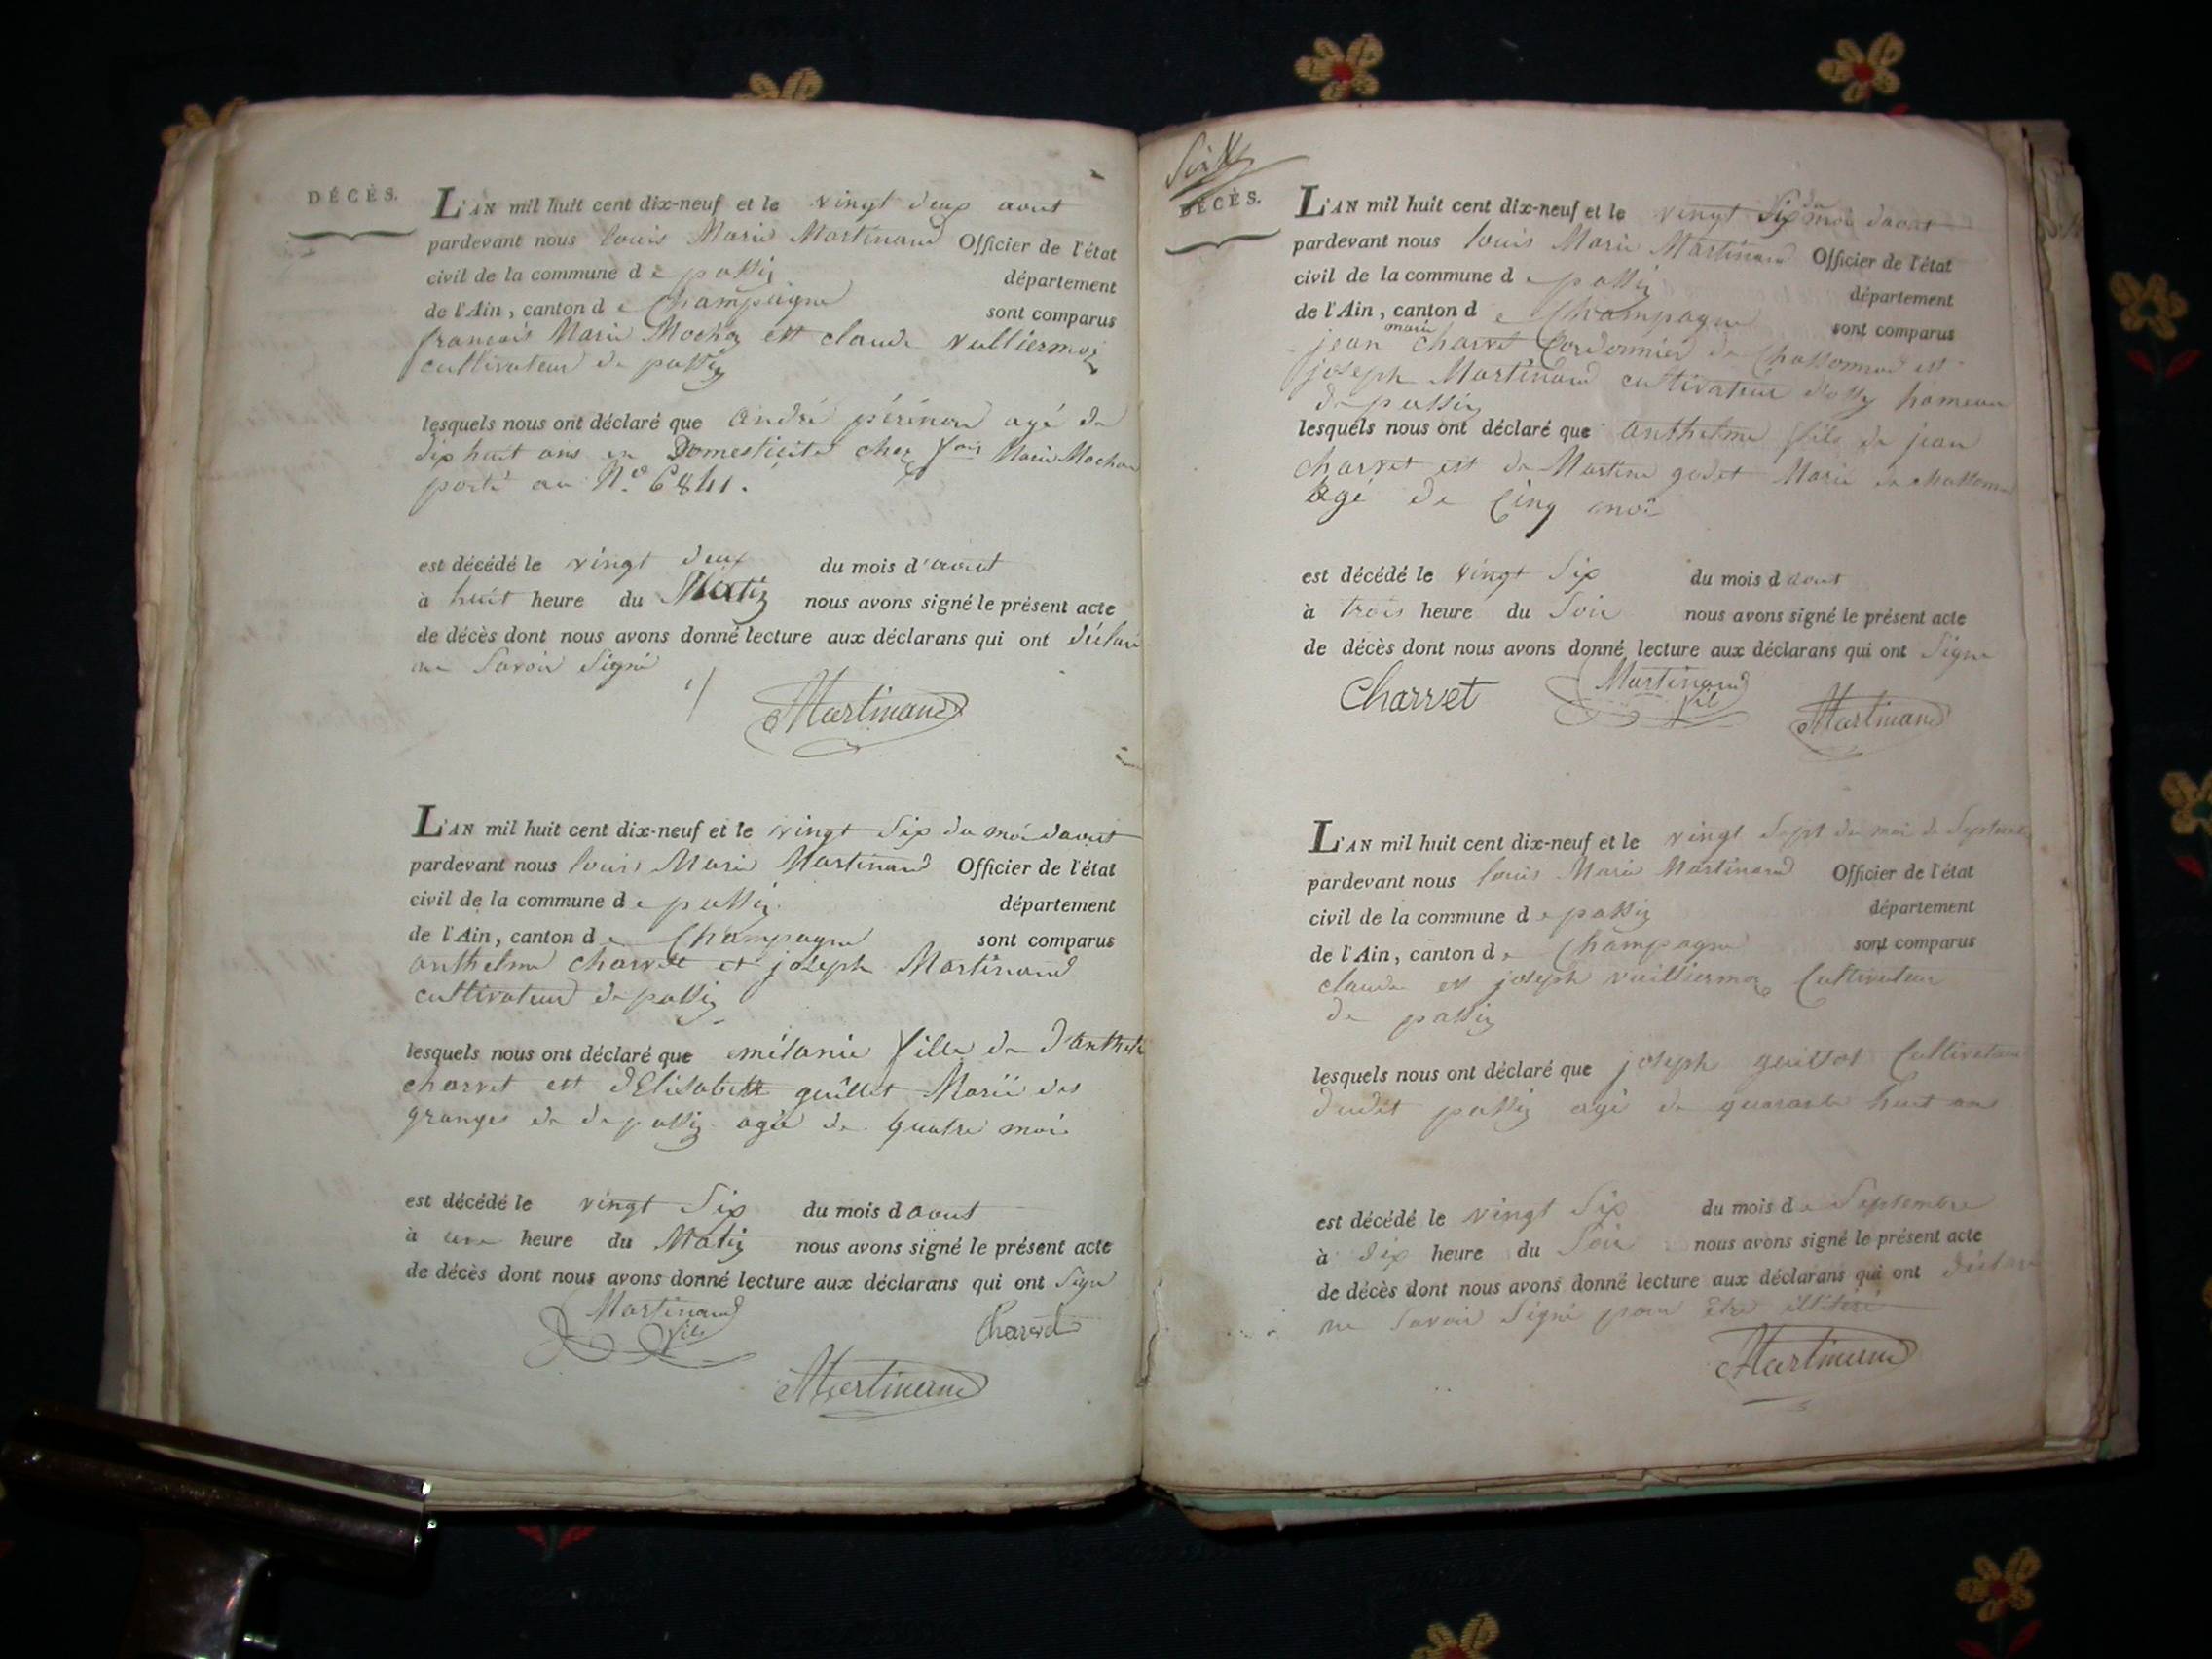 DÉCÈS.
L'AN mil huit cent dix-neuf et le vingt deux aout
pardevant nous louis Marie Martinand Officier de l'état
civil de la commune de passiz département
de l'Ain, canton de Champagne sont comparus
francois Marie Mochoz ett claude vulliermoz
cultivateur de passiz
lesquels nous ont déclaré que André pérénon agé de
dix huit ans en Domesticité chez fois Marie Mochon
porté au N.o 6841.
est décédé le vingt deux du mois d'aout
à huit heure du Matiz nous avons signé le présent acte
de décès dont nous avons donné lecture aux déclarans qui ont déclaré
ne Savoir Signé
Martinand
L'AN mil huit cent dix-neuf et le vingt Six du moi daout
pardevant nous louis Marie Martinand Officier de l'état
civil de la commune de passiz département
de l'Ain, canton de Champagne sont comparus
anthelme charvet et joseph Martinand
cultivateur de passiz
lesquels nous ont déclaré que mélanie fille de d'anthel
charvet ett dElisabett guillet Marié des
granges de de passiz agée de quatre moi
est décédé le vingt Six du mois daout
à une heure du Matiz nous avons signé le présent acte
de décès dont nous avons donné lecture aux déclarans qui ont Signé
Martinand fils Charvet
Martinand
DÉCÈS.
L'AN mil huit cent dix-neuf et le vingt Six du moi daout
pardevant nous louis Marie Martinand Officier de l'état
civil de la commune de passiz département
de l'Ain, canton de Champagne sont comparus
jean marie charvet Cordonnier de Chassonnod est
joseph Martinand cultivateur hameau
de passiz
lesquels nous ont déclaré que Anthelme fils de jean
charvet est de Martine godet Marié de
agé de Cinq moi
est décédé le vingt Six du mois daout
à trois heure du Soir nous avons signé le présent acte
de décès dont nous avons donné lecture aux déclarans qui ont Signé
Charvet Martinand fil Martinand
L'AN mil huit cent dix-neuf et le vingt Sept du moi de Septembre
pardevant nous louis Marie Martinand Officier de l'état
civil de la commune de passiz département
de l'Ain, canton de Champagne sont comparus
claude et joseph vuilliermoz Cultivateur
de passiz
lesquels nous ont déclaré que joseph guillot Cultivateur
dudit passiz agé de quarante huit ans
est décédé le vingt Six du mois de Septembre
à dix heure du Soir nous avons signé le présent acte
de décès dont nous avons donné lecture aux déclarans qui ont déclaré
ne Savoir Signé pour être illitéré
Martinand